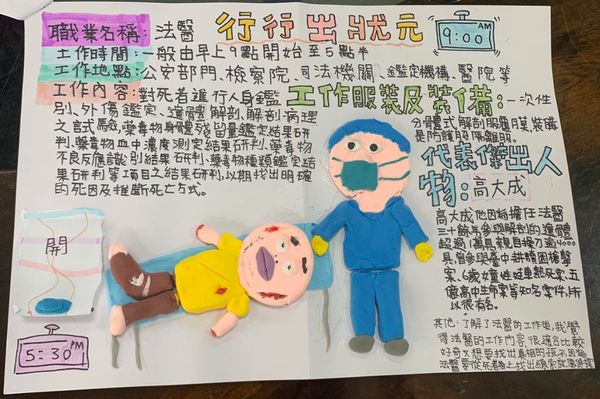 職業名稱:法醫
行行出狀元
9:00 AM
工作時間:一般由早上9點開始至5點半
工作地點:公安部門、檢察院、司法機關、鑑定機構、醫院等
工作內容:對死者進行人身鑑
別、外傷鑑定、遺體解剖、解剖病理
之試驗、藥毒物身體殘留量鑑定結果研
判、藥毒物血中濃度測定結果研判、藥毒物
不良反應識別結果研判、藥毒物種類鑑定結
果研判等項目之結果研判,以期找出明確
的死因及推斷死亡方式。
工作服裝及裝備:一次性
分體式解剖服覆膜,裝備
是防護服隔離服。
代表傑出人
物:高大成
高大成他因擔任法醫
三十餘年參與解剖的遺體
超過
具,曾參與臺中耕讀園槍擊
案、6歲女童姓娃車熱死案、五
億高中生命案等知名案件,所
以很有名。
其他:了解了法醫的工作後,我覺
得法醫的工作內容,很適合比較
好奇又想要找出真相的孩子,因為
法醫要從死者身上找出線索
開
5:30 PM